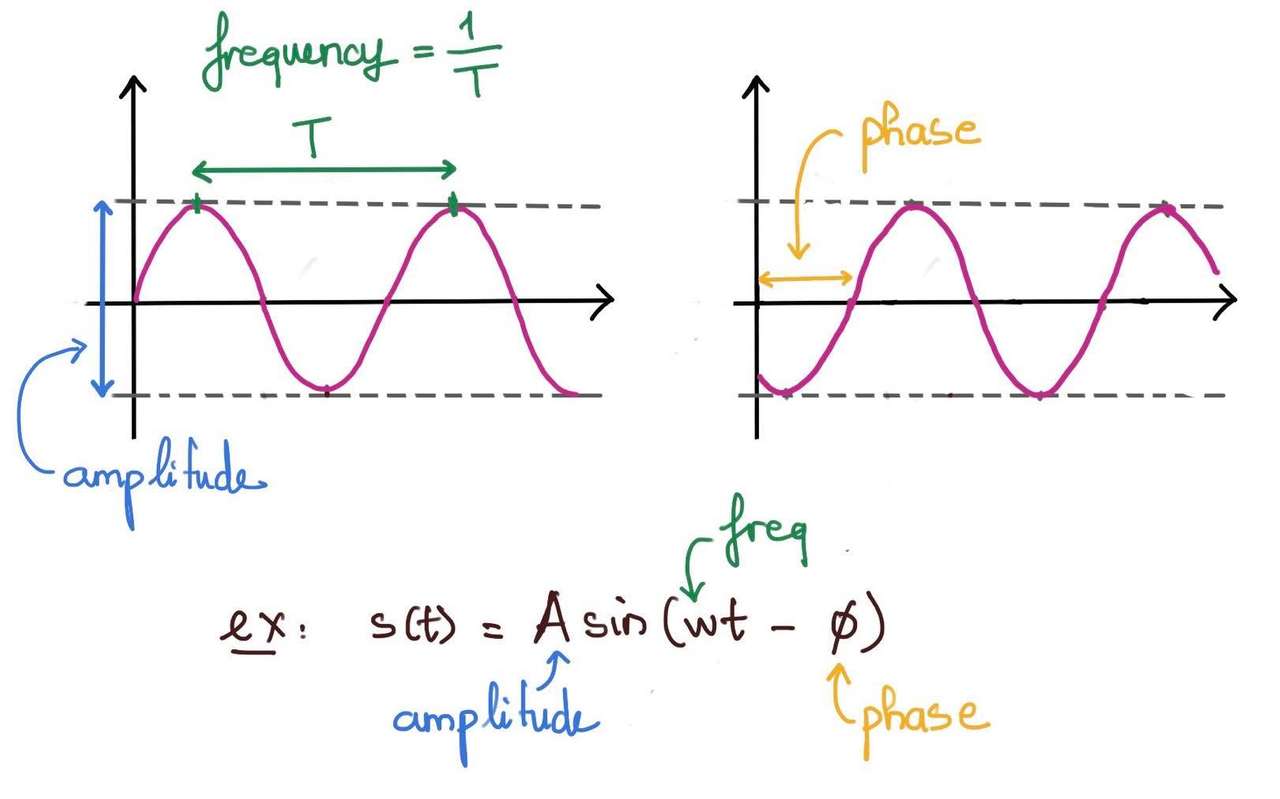 frequency = 1/T
T
phase
amplitude
freq
ex: s(t) = A sin (wt - ϕ)
amplitude
phase